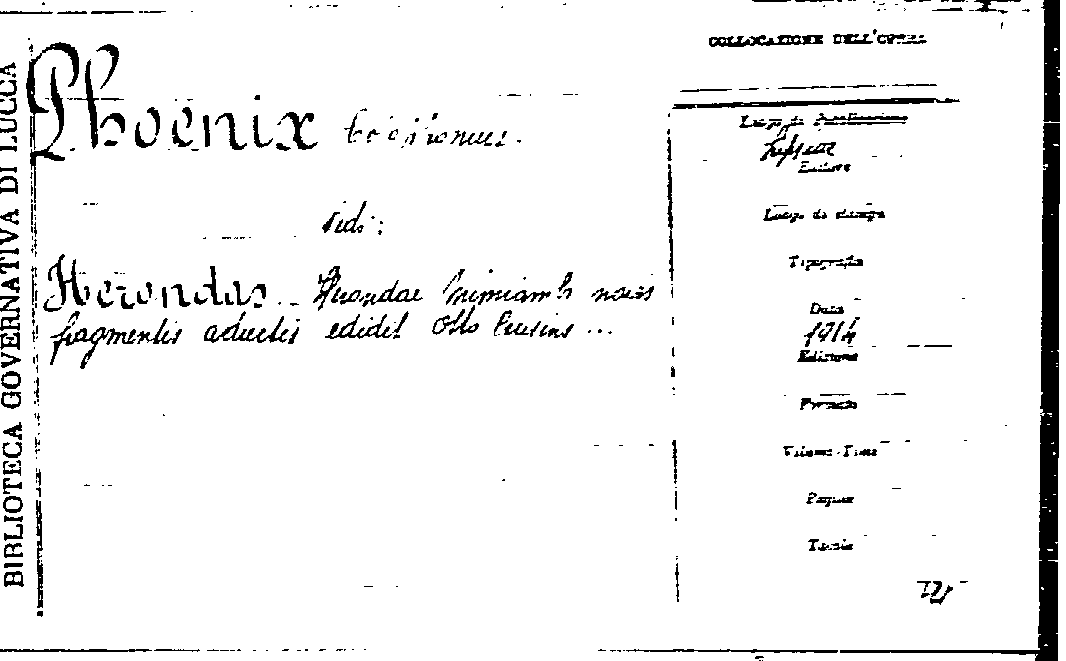 BIBLIOTECA GOVERNATIVA DI LUCCA
COLLOCAZIONE DELL'OPERA
Phoenix
Luogo di Pubblicazione
Lipsiae
Editore
Vedi:
Luogo di stampa
Tipografia
Herondas Herondae Mimiambi novis
fragmentis adiectis edidit Otto Crusius ...
Data
1914
Edizione
Formato
Volume - Tomo
Pagine
Tavole